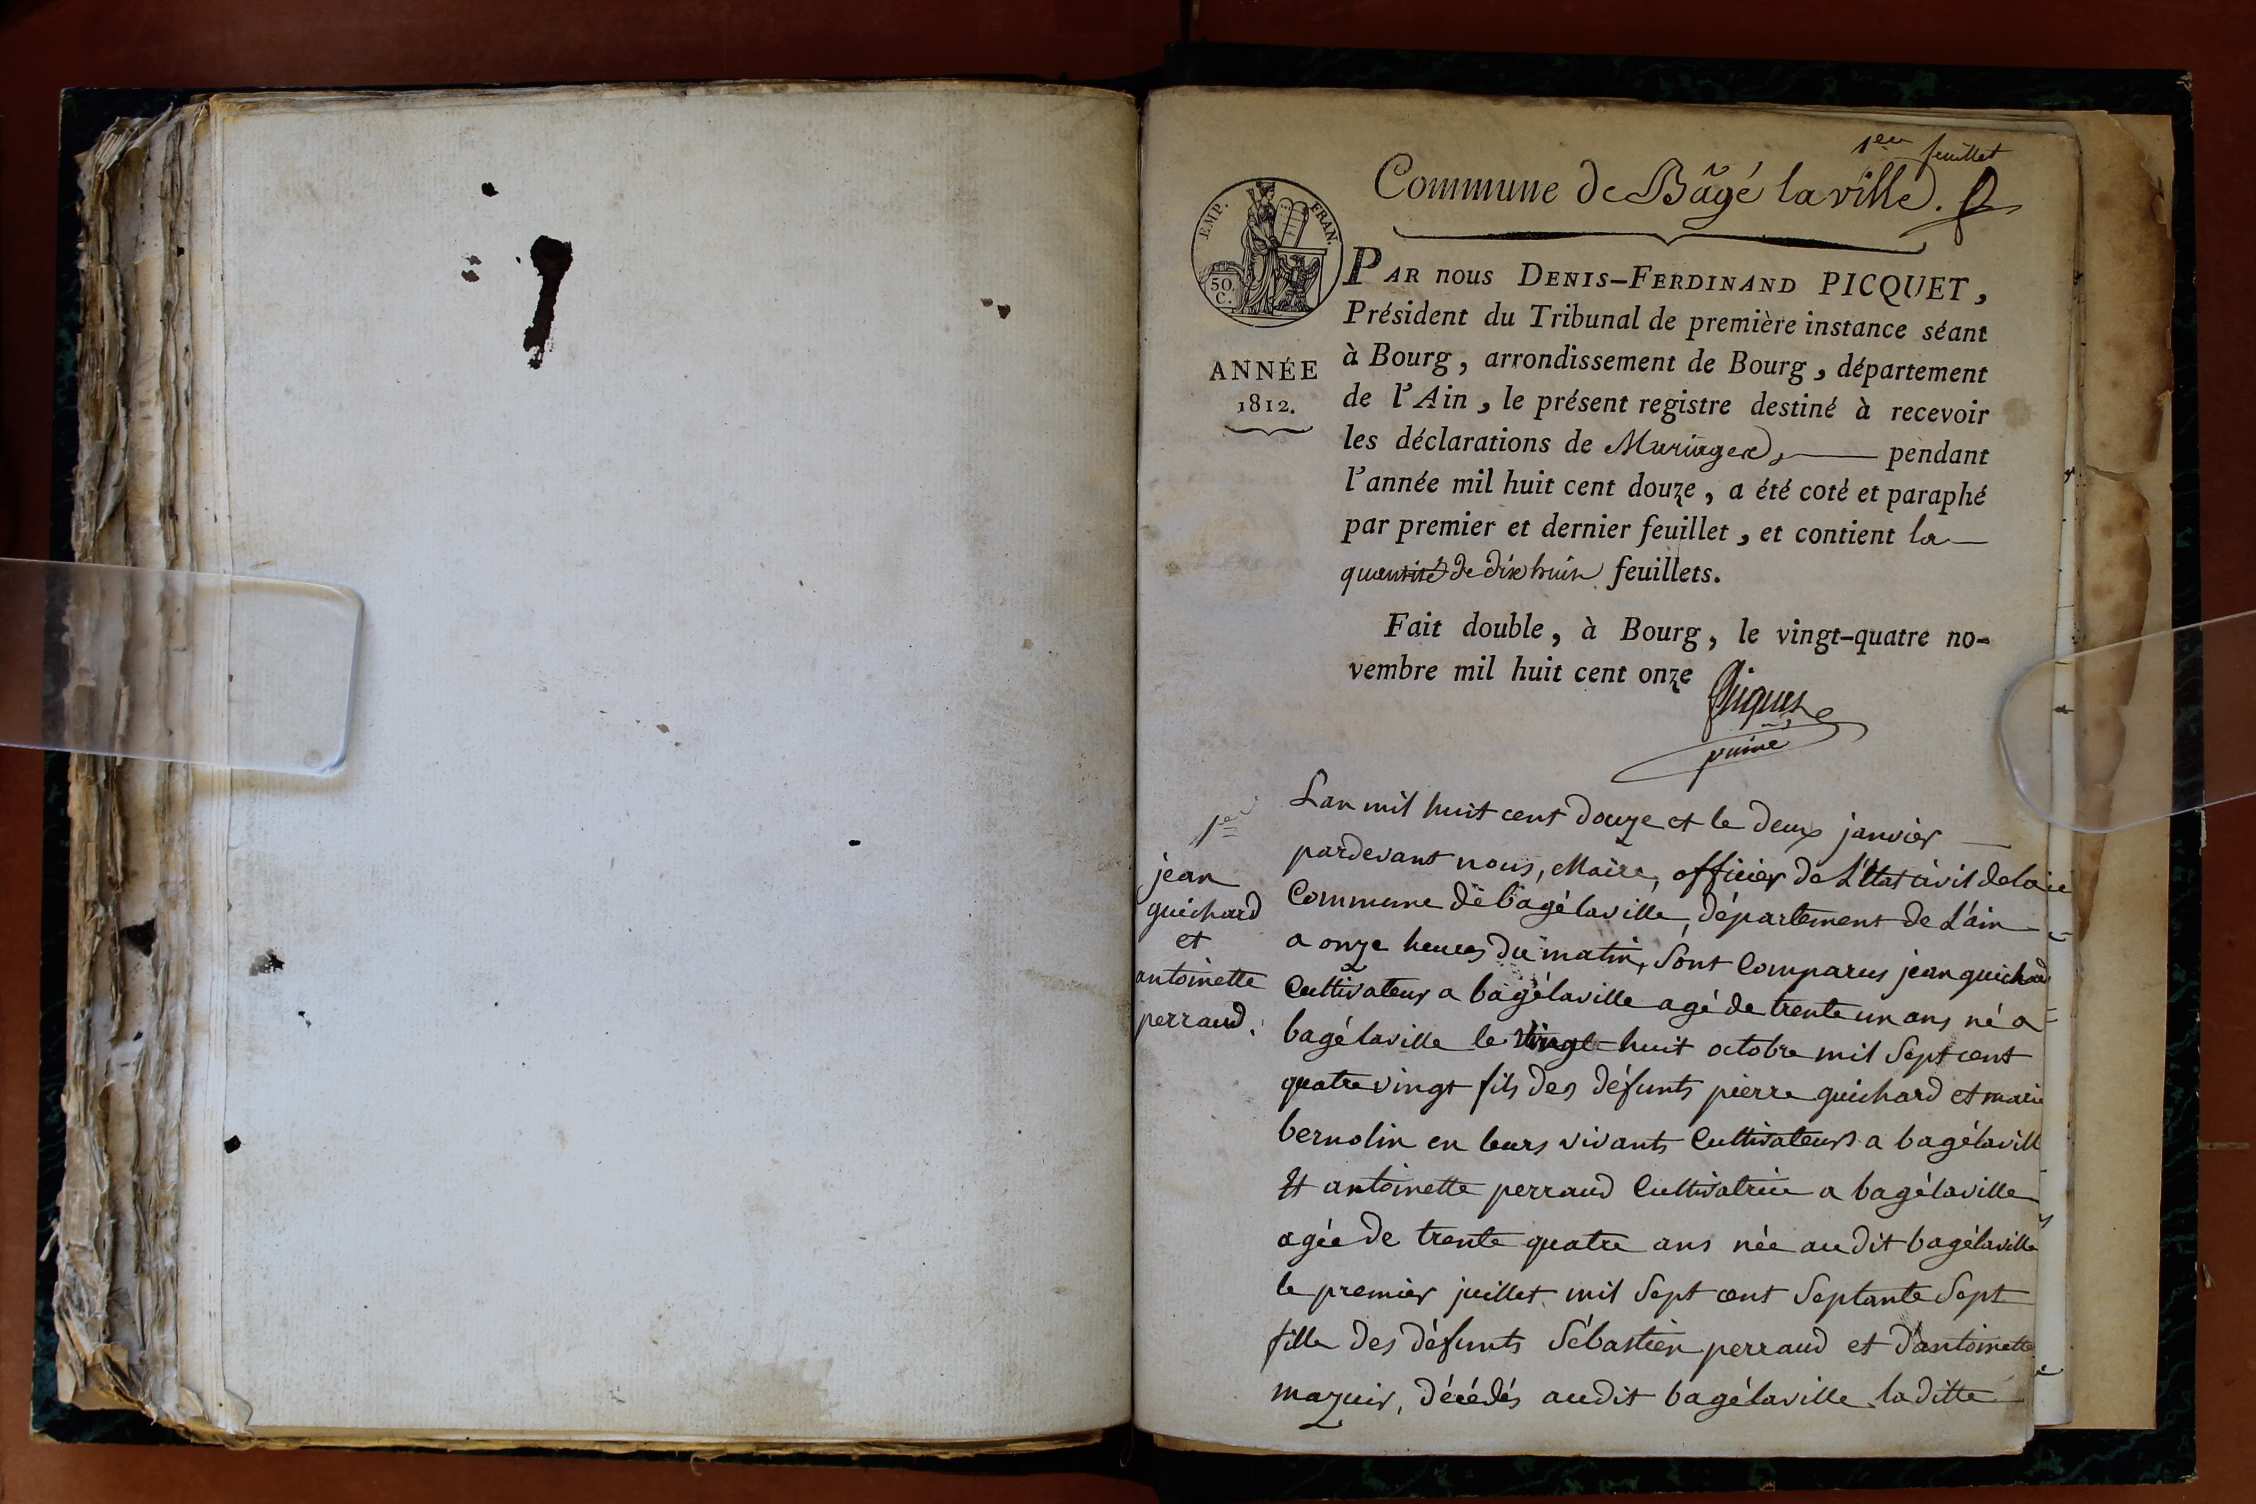 1er feuillet
Commune de Bâgé la ville.
EMP. FRAN.
50.
C.
ANNÉE
1812.
PAR nous DENIS-FERDINAND PICQUET,
Président du Tribunal de première instance séant
à Bourg, arrondissement de Bourg, département
de l'Ain, le présent registre destiné à recevoir
les déclarations de Mariages, pendant
l'année mil huit cent douze, a été coté et paraphé
par premier et dernier feuillet, et contient la
quantité de dix huit feuillets.
Fait double, à Bourg, le vingt-quatre no-
vembre mil huit cent onze
Picquet
1er
jean
guichard
et
antoinette
perraud.
L'an mil huit cent douze et le deux janvier
pardevant nous, Maire, officier de L'état civil de la
Commune de bagélaville, département de L'ain
a onze heures du matin, Sont Comparus jean guichard
Cultivateur a bagélaville agé de trente un ans né a
bagélaville le vingt huit octobre mil Sept cent
quatre vingt fils des défunts pierre guichard et marie
bernolin en leurs vivants Cultivateurs a bagélaville
Et antoinette perraud Cultivatrice a bagélaville
agée de trente quatre ans née au dit bagélaville
le premier juillet mil Sept cent Septante Sept
fille des défunts Sébastien perraud et d'antoinette
mazuir, décédés audit bagélaville la ditte